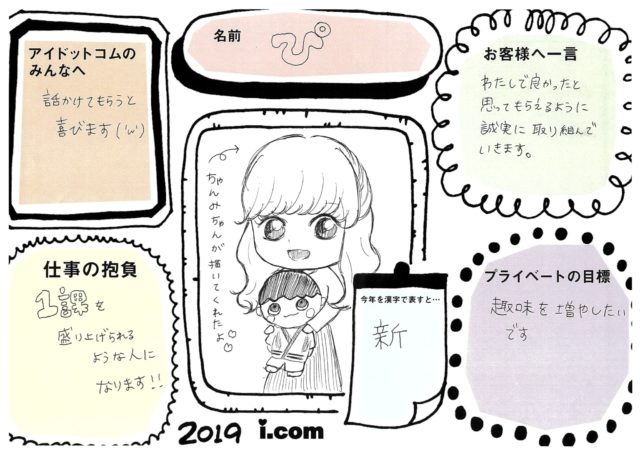 アイドットコムの
みんなへ
話かけてもらうと
喜びます('ω')
名前
ぴ
お客様へ一言
わたしで良かったと
思ってもらえるように
誠実に取り組んで
いきます。
ちゃんみちゃんが描いてくれたよ
仕事の抱負
1課を
盛り上げられる
ような人に
なります!!
今年を漢字で表すと…
新
プライベートの目標
趣味を増やしたい
です
2019 i.com